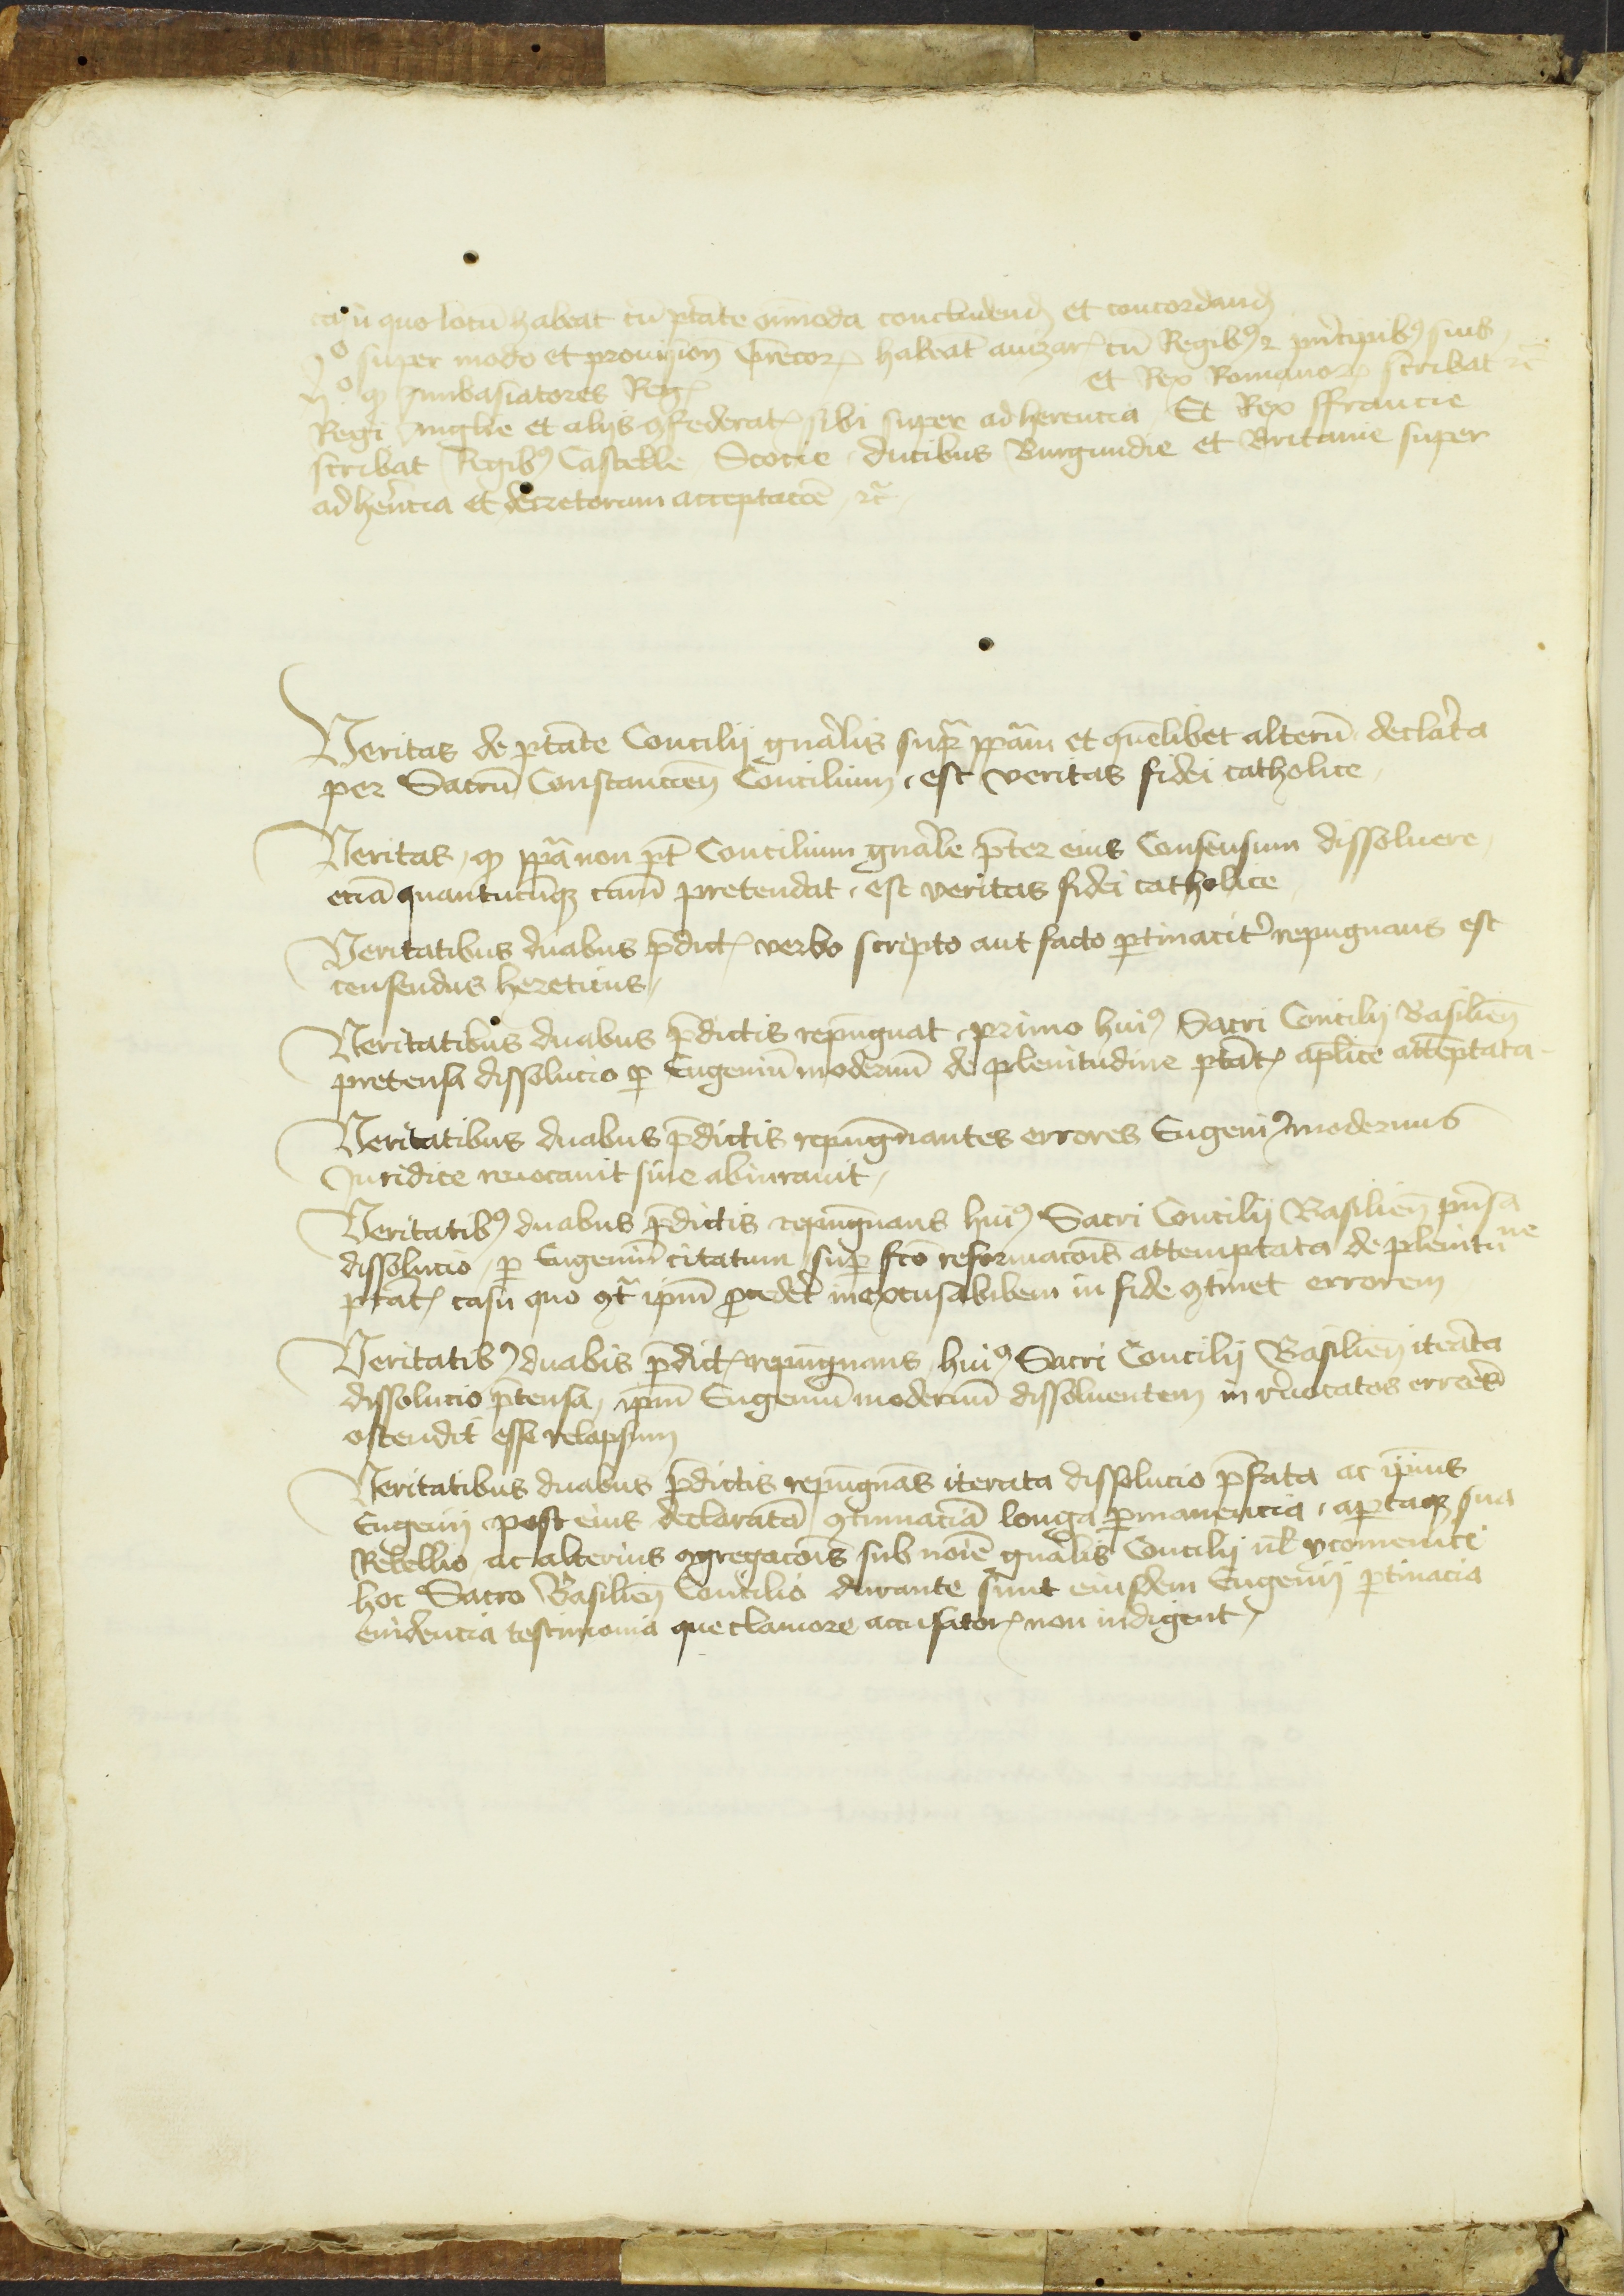 casu quo locū habeat cū ptāte oīmoda concludend et concordand
jº super modo et prouision Grecor habeāt auizar cū Regibꝰ ⁊ pncipibꝰ suis
ijº ꝙ Ambasiatores Reg et Rex Romanor scribat ⁊c̄
Regi Anglie et alijs ꝯfederat sibi super adherencia Et Rex ffrancie
scribat Regibꝰ Castelle Scocie ducibus Burgundie et Britanie super
adherncia et decretorum acceptacōe ⁊c̄
Veritas de ptāte Concilij gnālis supra ppām et quēlibet alterū declarata
per Sacrū Constancien̄ Concilium est veritas fidei catholice
Veritas ꝙ ppā non pt̄ Concilium gnāle p̄ter eius Consensum dissoluere
eciā quantūcūqꝫ cām pretendat est veritas fidei catholice
Veritatibus duabus p̄dict verbo scripto aut facto ꝑtinacit repugnans est
censendus hereticus
Veritatibus duabus p̄dictis repūgnat primo huiꝰ Sacri Concilij Basilien̄
pretensa dissolucio ꝑ Eugeniū modernū de plenitudine ptāt aplice attēptata
Veritatibus duabus p̄dictis repūgnantes errores Eugeniꝰ modernus
Juridice reuocauit siue abiurauit
Veritatibꝰ duabus p̄dictis repūgnans huiꝰ Sacri Concilij Basilien̄ pn̄sa
dissolucio ꝑ Eugeniū citatum suꝑ fcō reformacōis attemptata de plenitune
ptāt casu quo ꝯt̄ ipm̄ ꝓcedet inexcusabilem in fide ꝯtinet errorem
Veritatibꝰ duabis p̄dict repūgnans huiꝰ Sacri Concilij Basilien̄ iterata
dissolucio p̄tensa ipm̄ Eugeniū modernū dissoluentem in reuocatos errores
ostendit esse relapsum
Veritatibus duabus p̄dictis repūgnās iterata dissolucio p̄fata ac ipius
Eugenij post eius declaratā ꝯtumaciā longa ꝑmanencia aꝑtaqꝫ sua
Rebellio ac alterius ꝯgregacōis sub noīe gnālis Concilij
hoc Sacro Basilien̄ Concilio durante sunt eiusdem Eugenij ꝑtinacia
euidencia testimonia que clamore accusator non indigent